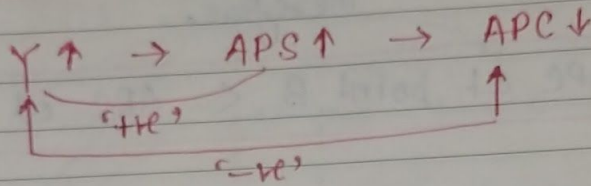 Y ↑ → APS ↑ → APC ↓
'+ve'
'-ve'